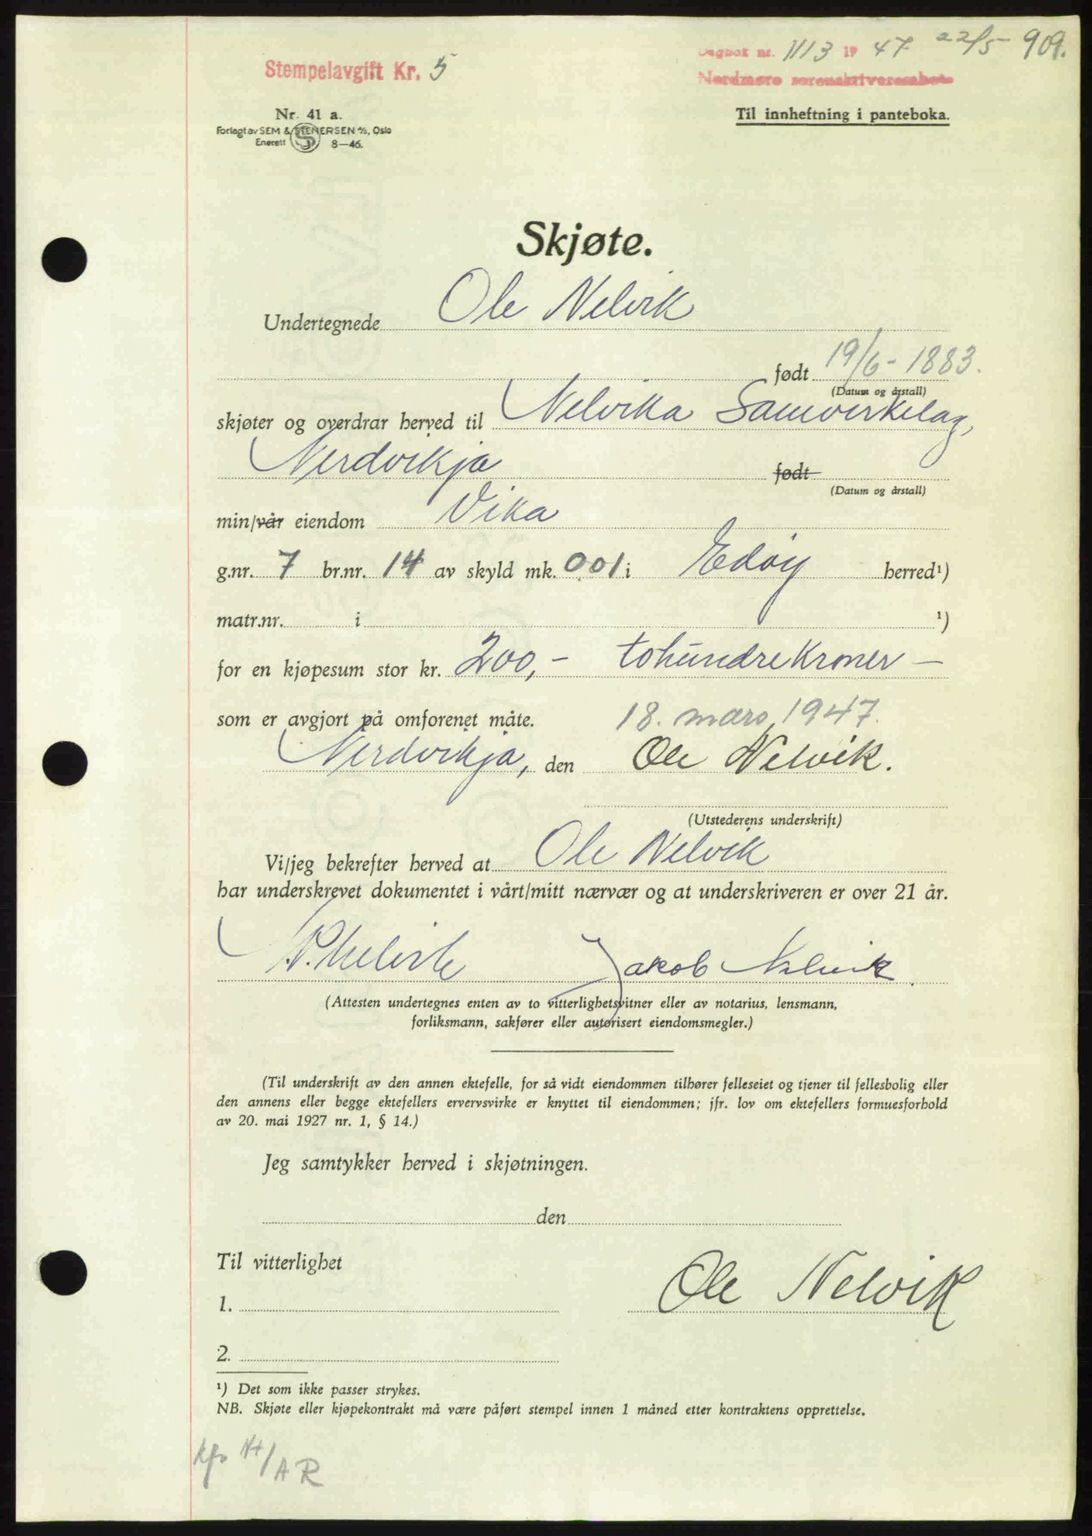 Stempelavgift Kr. 5
Dagbok nr. 1113 19 47 22/5 909.
Nordmøre sorenskriverembete
Nr. 41 a.
Forlagt av SEM & STENERSEN A/S, Oslo
Enerett 8—46.
Til innheftning i panteboka.
Skjøte.
Undertegnede Ole Nelvik
født 19/6-1883.
(Datum og årstall)
skjøter og overdrar herved til Nelvika Samvirkelag,
Nerdvikja født
(Datum og årstall)
min/vår eiendom Vika
g.nr. 7 br.nr. 14 av skyld mk. 0.01 i Edøy herred¹)
matr.nr. i ¹)
for en kjøpesum stor kr. 200,- tohundrekroner —
som er avgjort på omforenet måte. 18. mars 1947.
Nerdvikja, den Ole Nelvik.
(Utstederens underskrift)
Vi/jeg bekrefter herved at Ole Nelvik
har underskrevet dokumentet i vårt/mitt nærvær og at underskriveren er over 21 år.
P. Nelvik Jakob Nelvik.
(Attesten undertegnes enten av to vitterlighetsvitner eller av notarius, lensmann,
forliksmann, sakfører eller autorisert eiendomsmegler.)
(Til underskrift av den annen ektefelle, for så vidt eiendommen tilhører felleseiet og tjener til fellesbolig eller
den annens eller begge ektefellers ervervsvirke er knyttet til eiendommen; jfr. lov om ektefellers formuesforhold
av 20. mai 1927 nr. 1, § 14.)
Jeg samtykker herved i skjøtningen.
den
Til vitterlighet
Ole Nelvik
1.
2.
¹) Det som ikke passer strykes.
NB. Skjøte eller kjøpekontrakt må være påført stempel innen 1 måned etter kontraktens opprettelse.
AR